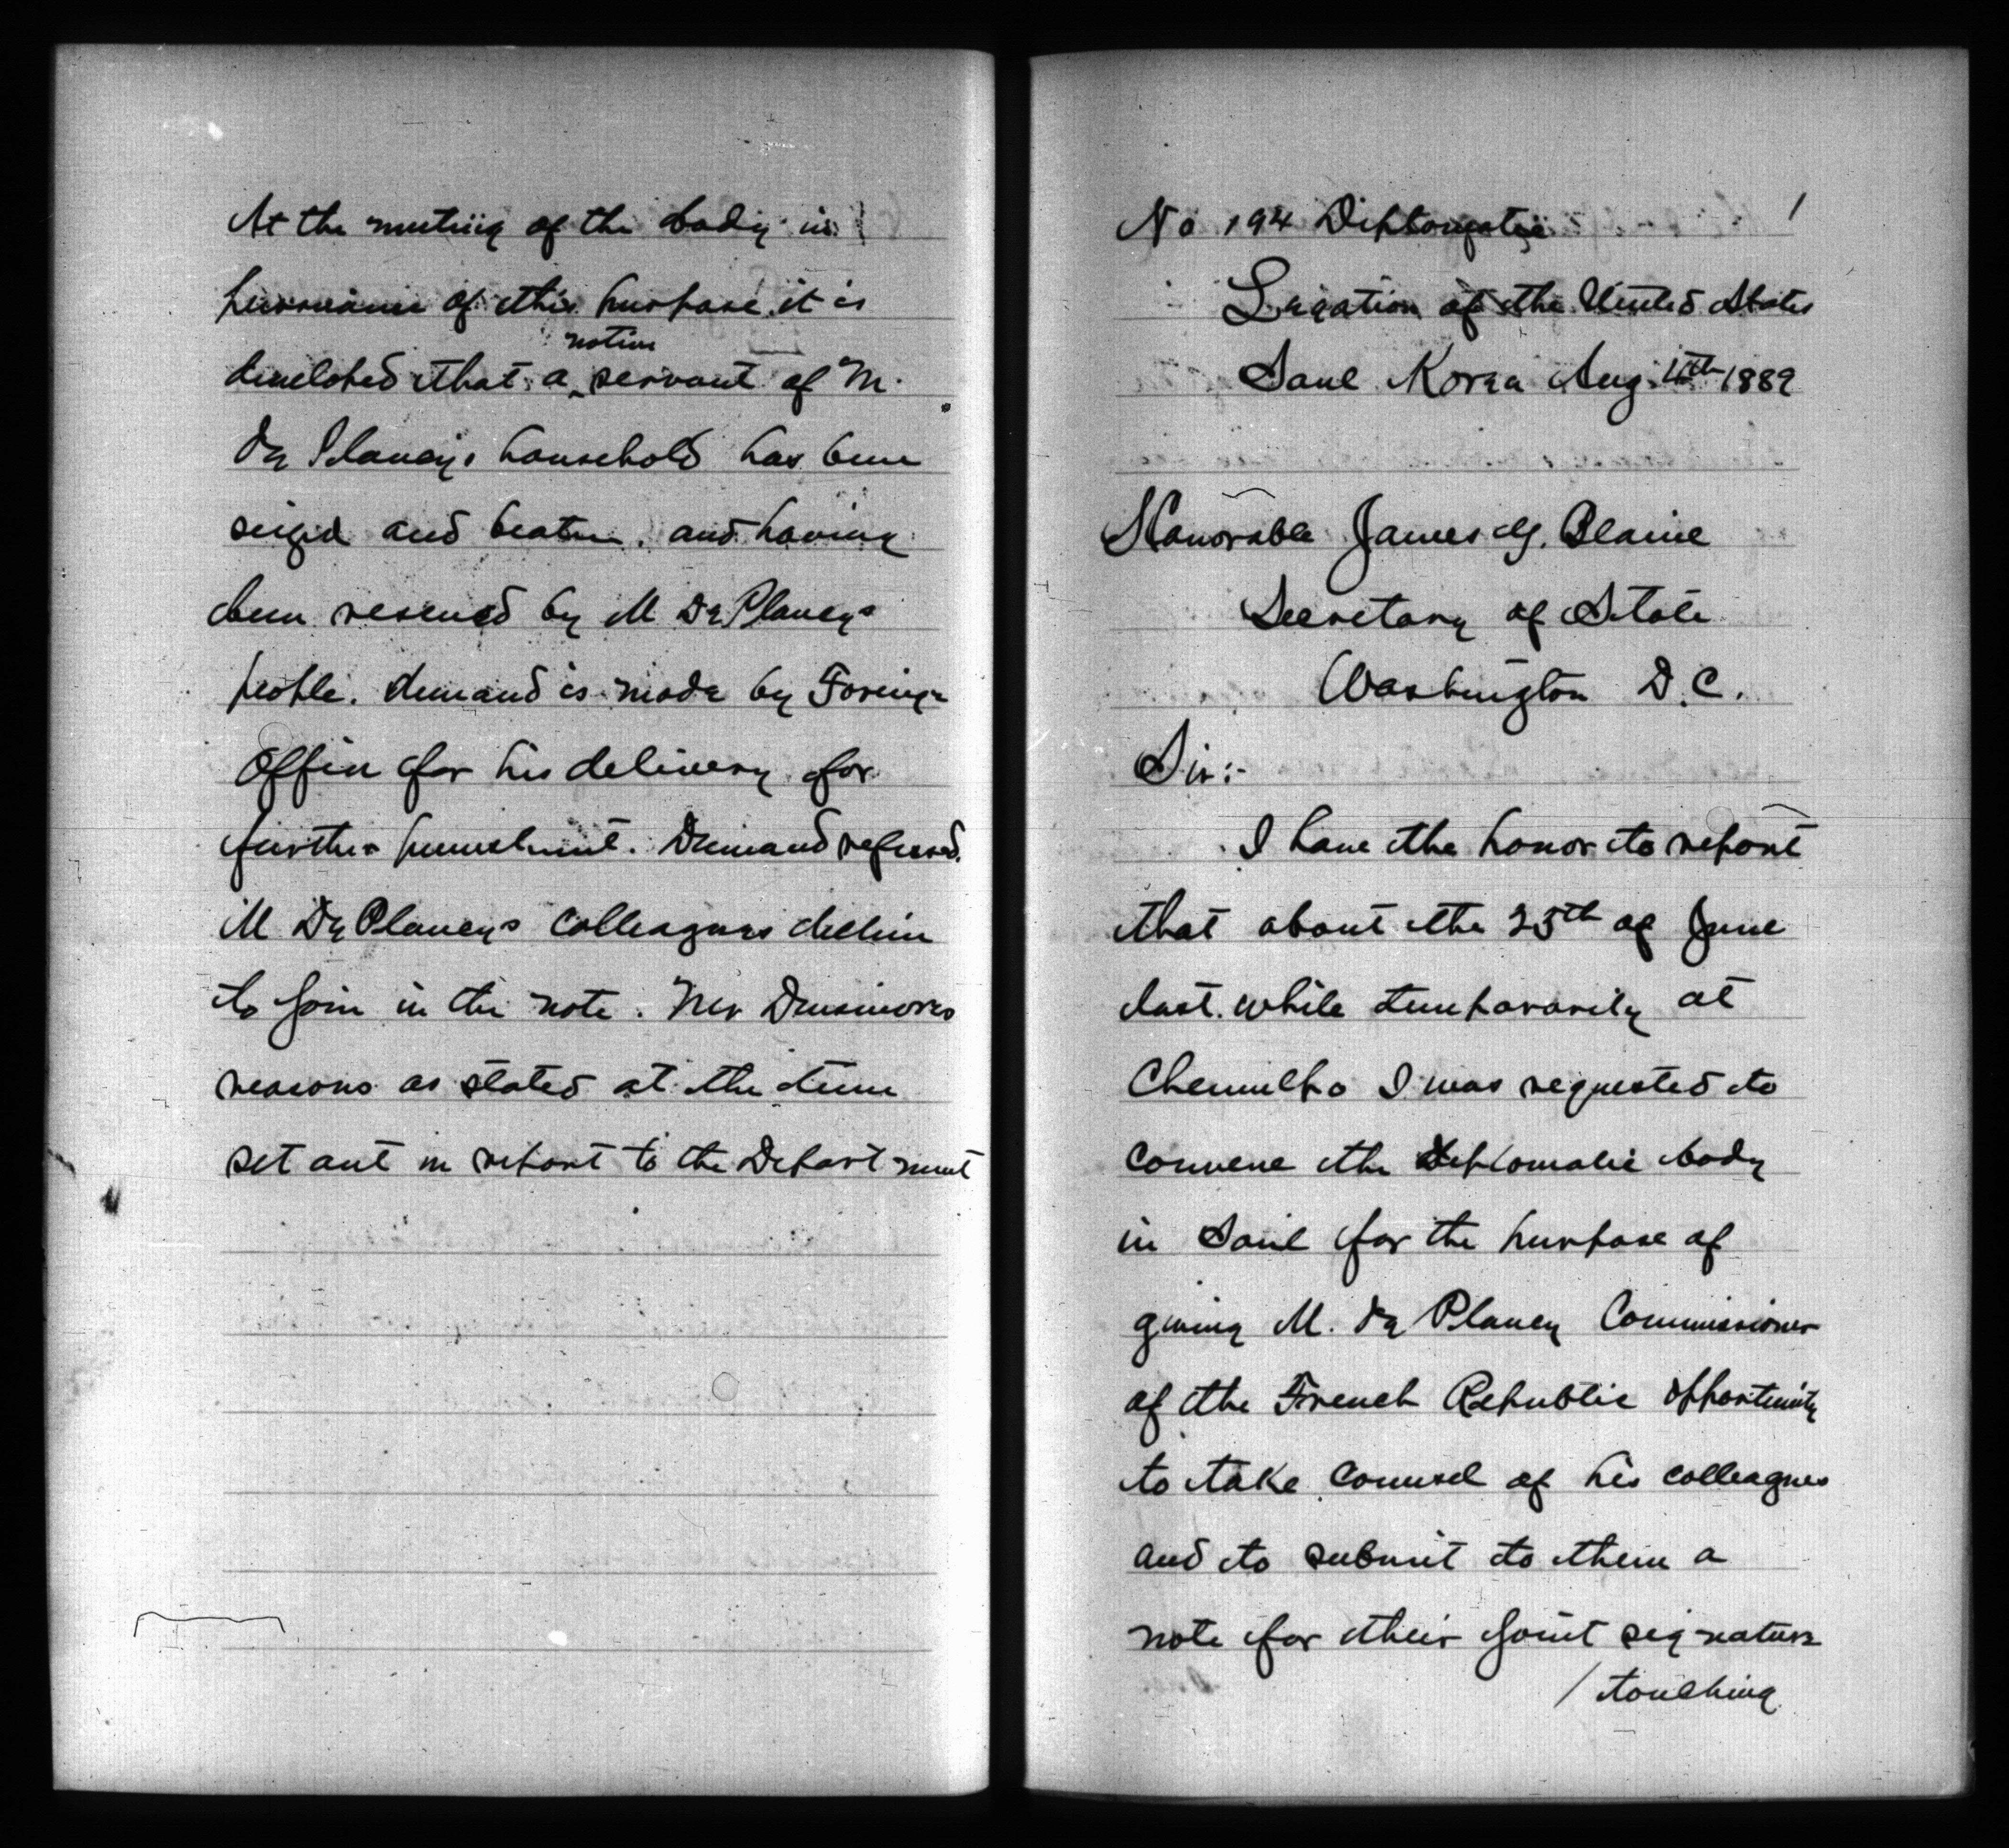 At the meeting of the body in
pursuance of this purpose it is
native
developed that a servant of M.
De Plancy's household has been
seized and beaten, and having
been rescued by M De Plancy's
people. demand is made by Foreign
Office for his delivery for
further punishment. Demand refused.
M De Plancy's colleagues decline
to join in the note. Mr Dinsmore's
reasons as stated at the time
set out in report to the Department
1
No 194 Diplomatic
Legation of the United States
Soul Korea Aug 1889
Honorable James G. Blaine
Secretary of State
Washington D.C.
Sir:-
I have the honor to report
that about the 25th of June
last. while temporarily at
Chemulpo I was requested to
convene the Diplomatic body
in Soul for the purpose of
giving M. De Plancy Commissioner
of the French Republic opportunity
to take counsel of his colleagues
and to submit to them a
note for their joint signature
/ touching